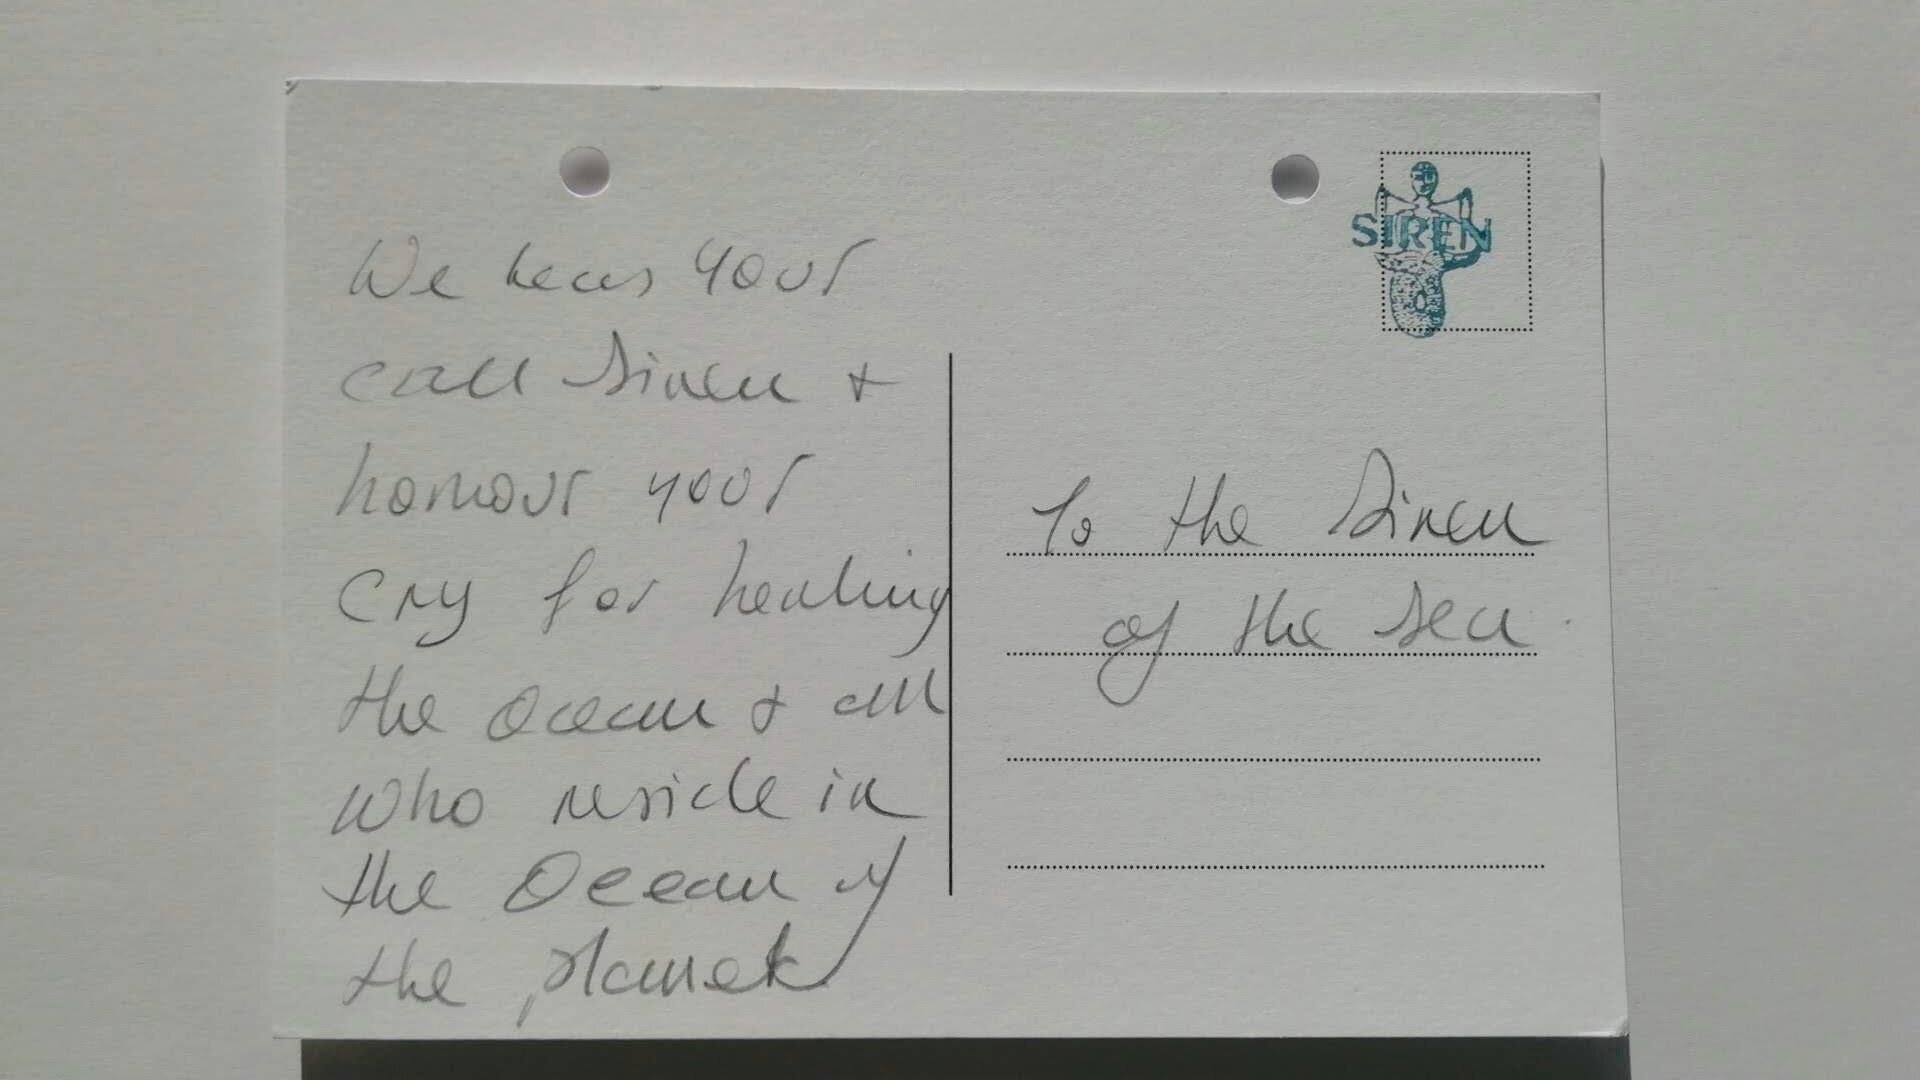 We hear your
call Siren +
honour your
cry for healing
the Ocean + all
who reside in
the Ocean of
the planet
SIREN
To the Siren
of the Sea